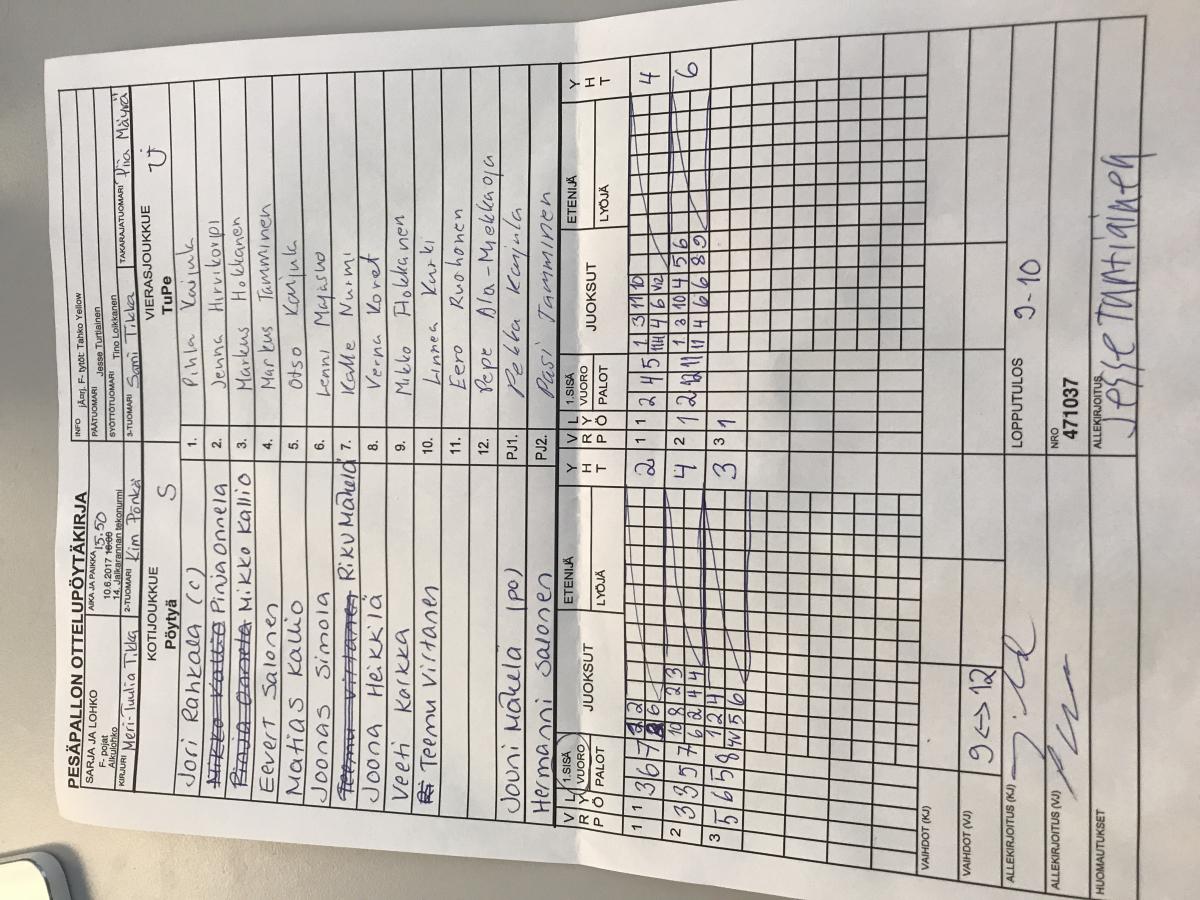 PESÄPALLON OTTELUPÖYTÄKIRJA
SARJA JA LOHKO
F- pojat
Alkulohko
AIKA JA PAIKKA 15.50
10.6.2017
14. Jalkarannan tekonurmi
INFO jÄrrj. F- tytöt: Tahko Yellow
PÄÄTUOMARI Jesse Turtiainen
SYÖTTÖTUOMARI Tino Loikkanen
KIRJURI Meri-Tuulia Tikka
2-TUOMARI Kim Pönkä
3-TUOMARI Sami Tikka
TAKARAJATUOMARI Piia Mäyrä
KOTIJOUKKUE
Pöytyä S
VIERASJOUKKUE
TuPe U
Jori Rahkala (c) 1. Pihla Kaijula
Mikko Kallio Pinja Onnela 2. Jenna Hirvikorpi
Pinja Onnela Mikko Kallio 3. Markus Hokkanen
Eevert Salonen 4. Markus Tamminen
Matias Kallio 5. Otso Kanjula
Joonas Simola 6. Lenni
Teemu Virtanen Riku Mäkelä 7. Kalle Nurmi
Joona Heikkilä 8. Verna Koret
Veeti Karkka 9. Mikko Hokkanen
Teemu Virtanen 10. Linnea Kurki
11. Eero Ruohonen
12. Pepe Ala-Mekkaoja
Jouni Mäkelä (po) PJ1. Pekka Kanjula
Hermanni Salonen PJ2. Pasi Tamminen
V R P L Y Ö 1.SISÄ VUORO PALOT JUOKSUT ETENIJÄ LYÖJÄ Y H T
V R P L Y Ö 1.SISÄ VUORO PALOT JUOKSUT ETENIJÄ LYÖJÄ Y H T
1 1 3 6 7 2 2
1 1 2 4 5 1 3 11 10 4
2 3 3 5 7 10 8 2 3 4
6 2 4 4
2 1 2 12 11 1 3 10 4 5 6 6
11 4 6 6 8 9
3 5 6 5 8 1 2 4 3
5 6
3 1
VAIHDOT (KJ)
VAIHDOT (VJ) 9 <-> 12
ALLEKIRJOITUS (KJ)
LOPPUTULOS 9-10
ALLEKIRJOITUS (VJ)
NRO
471037
HUOMAUTUKSET
ALLEKIRJOITUS
Jesse Turtiainen